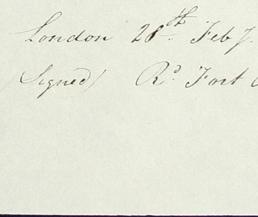 London 28th. Feby.
(Signed) Rd. Fort